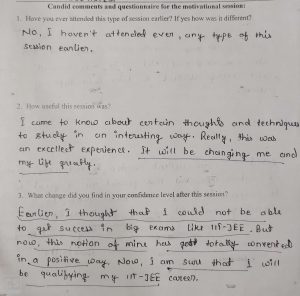 Candid comments and questionnaire for the motivational session:
1. Have you ever attended this type of session earlier? If yes how was it different?
No, I haven't attended ever, any type of this
session earlier.
2. How useful this session was?
I came to know about certain thoughts and techniques
to study in an interesting way. Really, this was
an excellect experience. It will be changing me and
my life greatly.
3. What change did you find in your confidence level after this session?
Earlier, I thought that I could not be able
to get success in big exams like IIT-JEE. But
now, this notion of mine has totally converted
in a positive way. Now, I am sure that I will
be qualifying my IIT-JEE career.